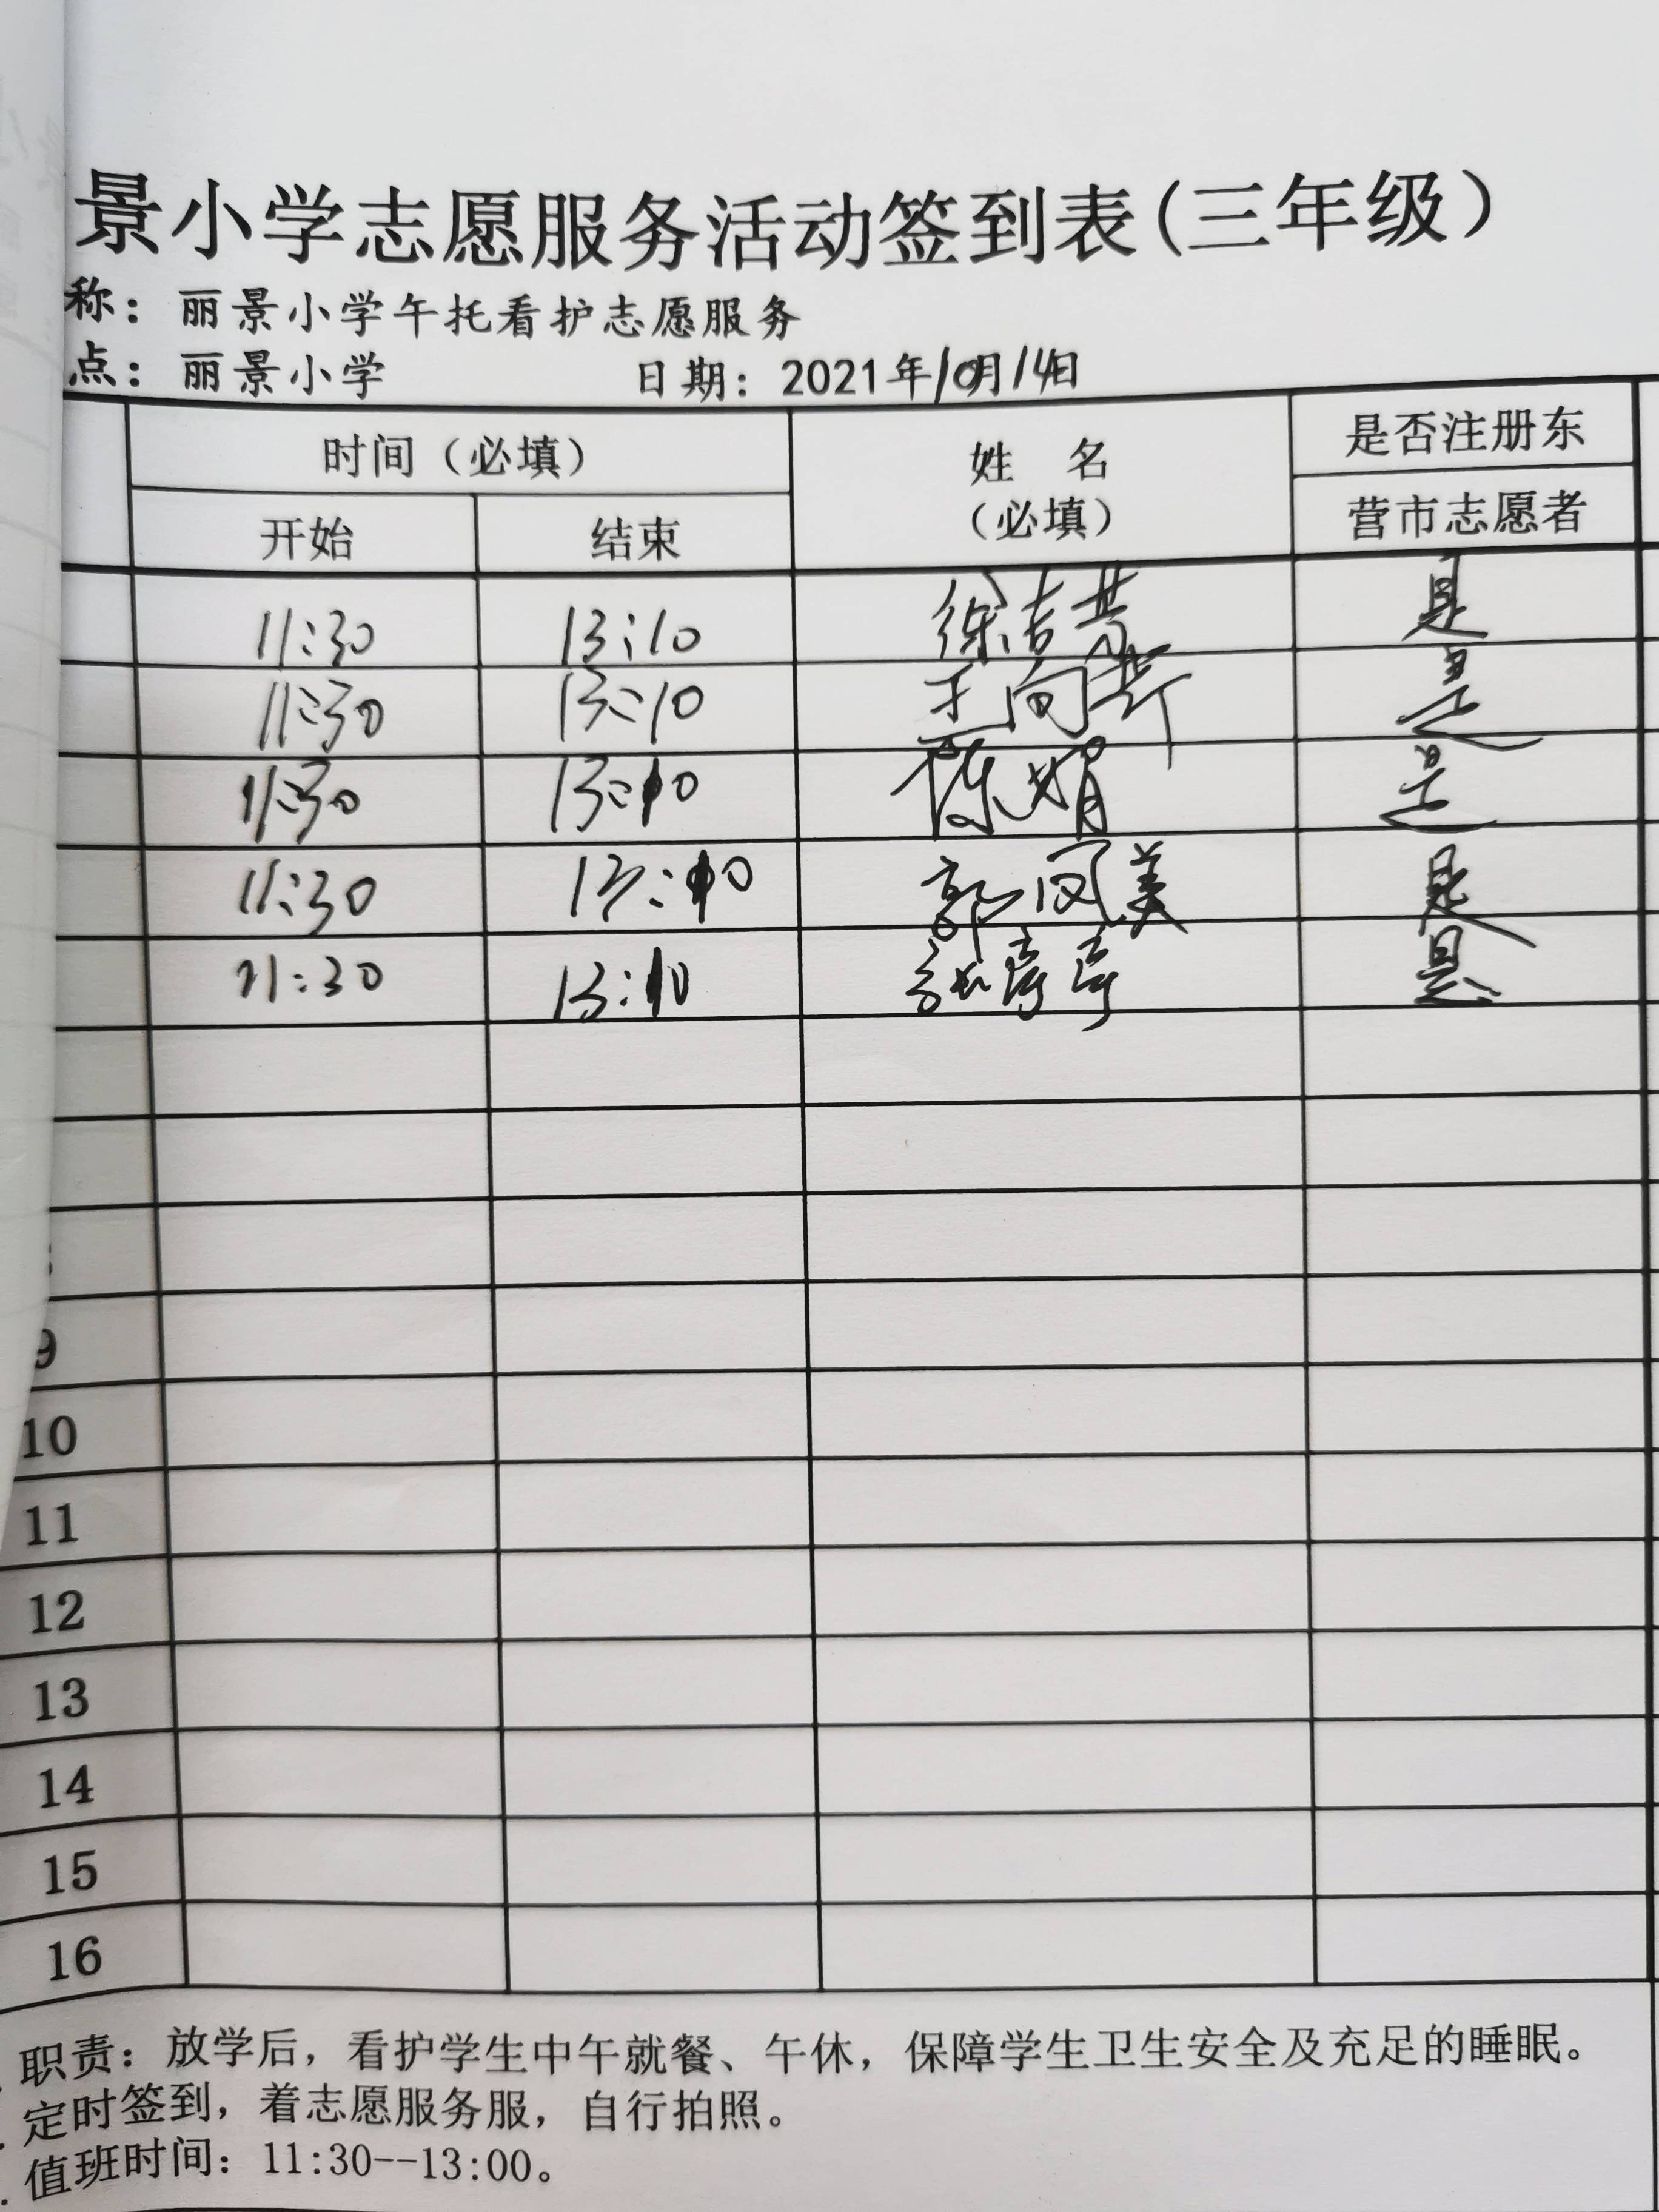 景小学志愿服务活动签到表(三年级）
称：丽景小学午托看护志愿服务
点：丽景小学 日期：2021年10月14日
时间（必填） 姓 名 是否注册东
开始 结束 （必填） 营市志愿者
11:30 13:10 徐吉芬 是
11:30 13:10 王向芹 是
11:30 13:10 陈娟 是
11:30 13:10 郭凤美 是
11:30 13:10 张青青 是
9
10
11
12
13
14
15
16
职责：放学后，看护学生中午就餐、午休，保障学生卫生安全及充足的睡眠。
定时签到，着志愿服务服，自行拍照。
值班时间：11:30--13:00。